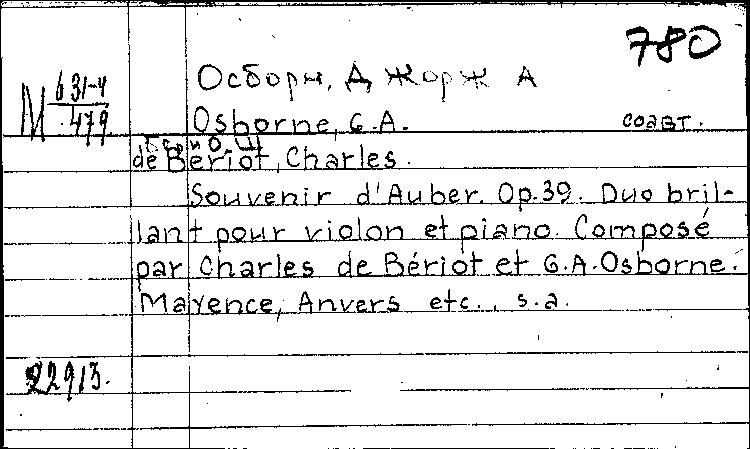 780
М 631-4
479
Осборн, Джорж А
Osborne, G.A. соавт.
de Bériot, Charles.
Souvenir d'Auber. Op.39. Duo bril-
lant pour violon et piano. Composé
par Charles de Bériot et G.A.Osborne.
Mayence, Anvers etc., s.a.
22913.